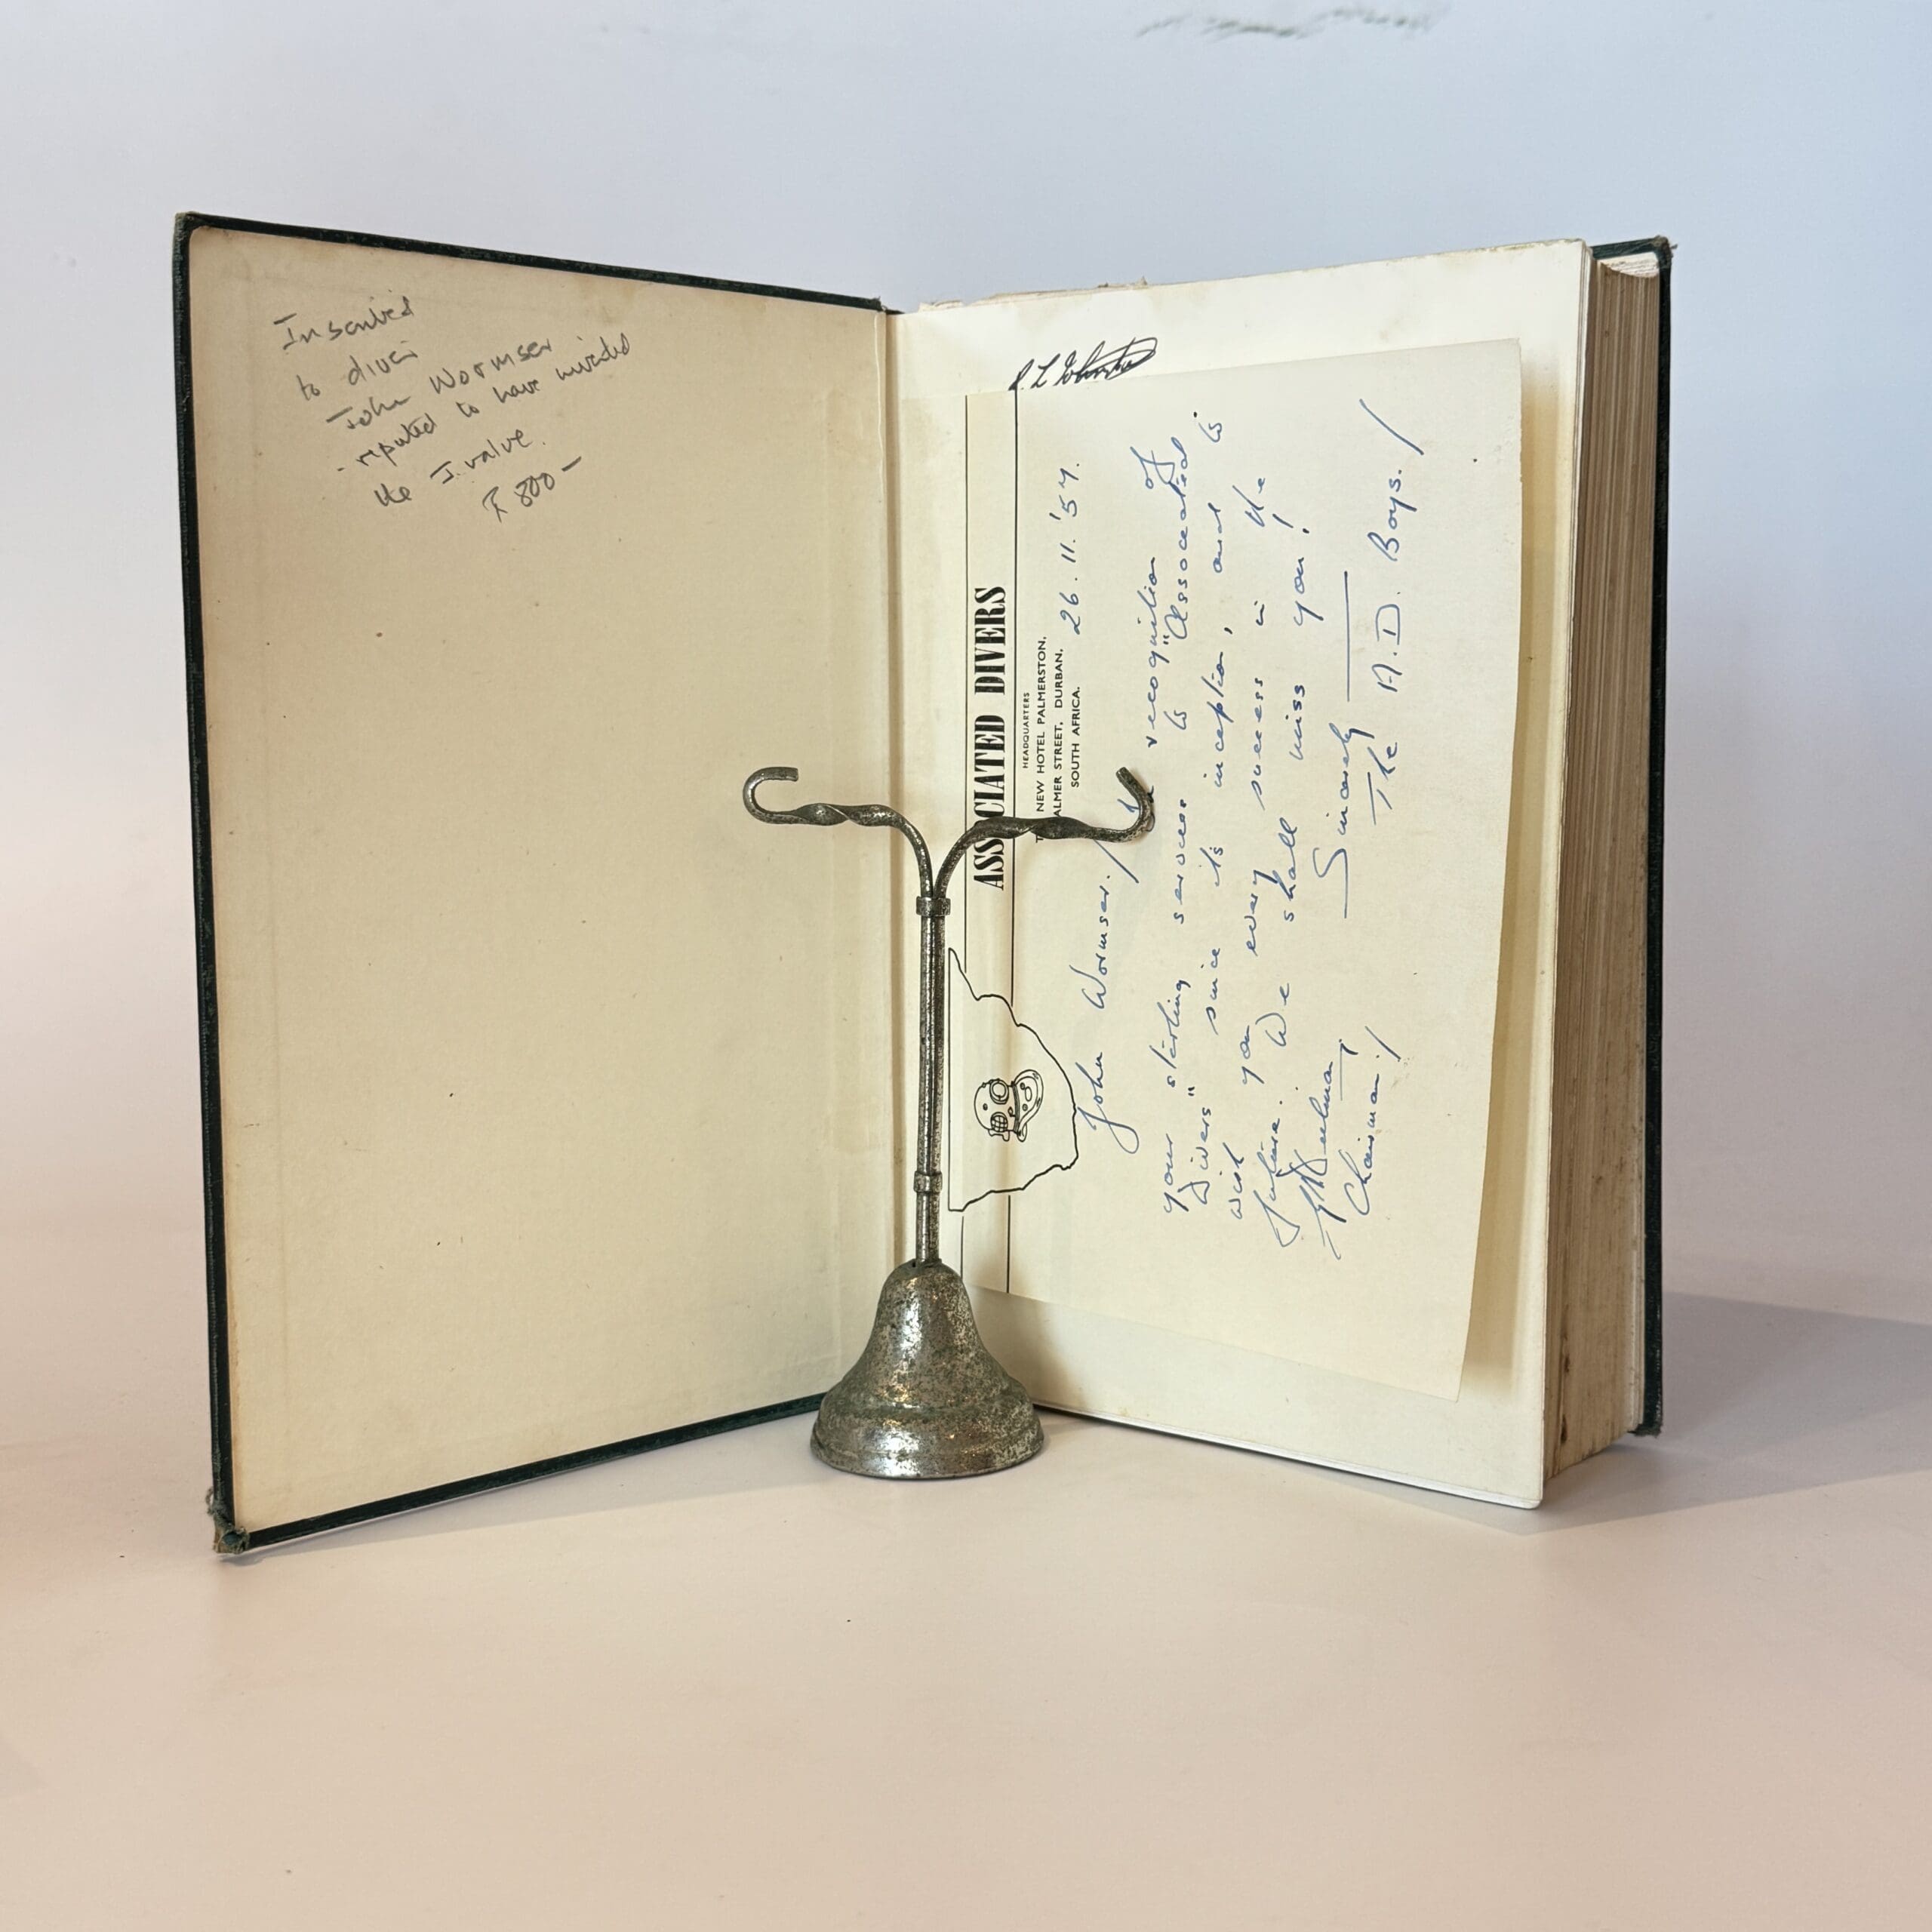 Inscribed
to diver
John Wormser
- reputed to have invented
the J. valve.
R 800 —
R. L.
ASSOCIATED DIVERS
HEADQUARTERS
NEW HOTEL PALMERSTON,
PALMER STREET, DURBAN,
SOUTH AFRICA.
26.11.'57.
John Wormser./
In recognition of
your sterling services to "Associated
Divers" since its inception, and to
wish you every success in the
future. We shall miss you!
Sincerely
Chairman./
The A.D. Boys./